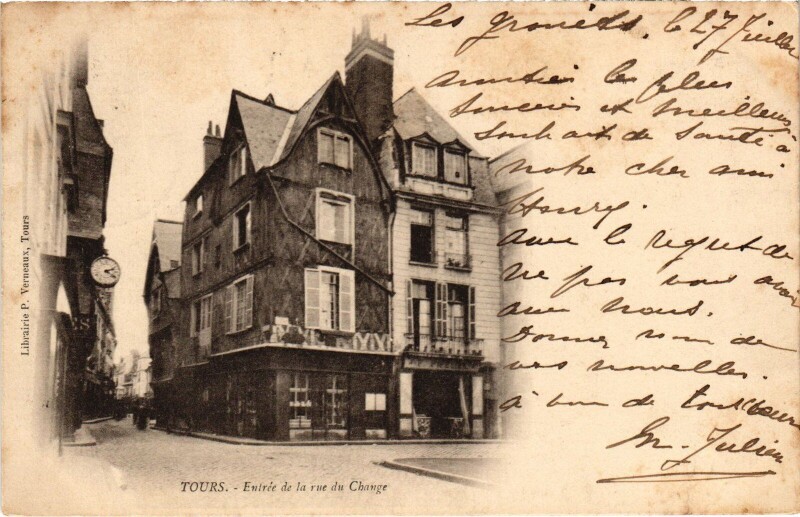 Les le 27 Juillet
Amitiés les plus
sincères et meilleurs
souhaits de santé à
notre cher ami
Henry.
Avec le regret de
ne pas vous avoir
avec nous.
Donnez nous de
vos nouvelles.
à vous de tout coeur
Julien
Librairie P. Verneaux, Tours
TOURS. - Entrée de la rue du Change